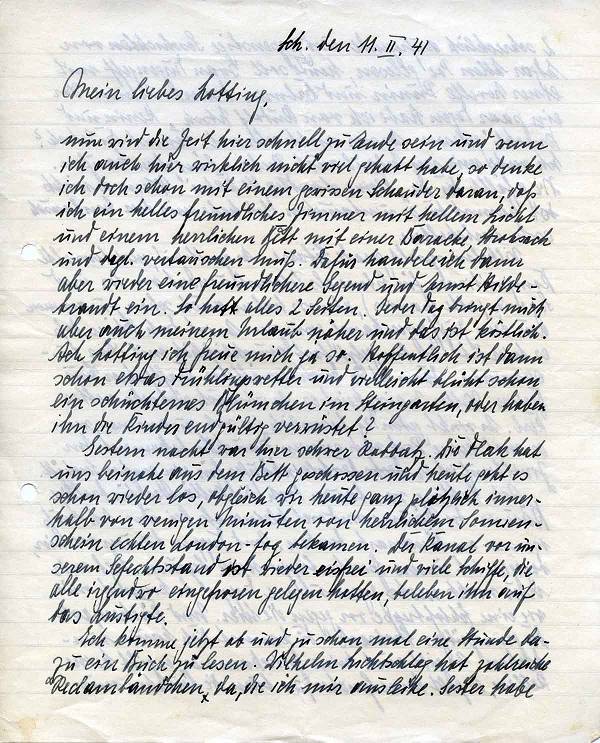 Sch. den 11. II. 41
Mein liebes Lotting,
nun wird die Zeit hier schnell zu Ende sein und wenn
ich auch hier wirklich nicht viel gehabt habe, so denke
ich doch schon mit einem gewissen Schauder daran, daß
ich ein helles freundliches Zimmer mit hellem Licht
und einem herrlichen Bett mit einer Baracke, Strohsack
und dergl. vertauschen muß. Dafür handele ich dann
aber wieder eine freundlichere Gegend und Ernst Hilde-
brandt ein. So hat alles 2 Seiten. Jeder Tag bringt mich
aber auch meinem Urlaub näher und das ist köstlich.
Ach Lotting ich freue mich ja so. Hoffentlich ist dann
schon etwas Frühlingswetter und vielleicht blüht schon
ein schüchternes Blümchen im Steingarten, oder haben
ihn die Kinder endgültig verwüstet?
Gestern nacht war hier schwer Rabbatz. Die Flak hat
uns beinahe aus dem Bett geschossen und heute geht es
schon wieder los, obgleich wir heute ganz plötzlich inner-
halb von wenigen Minuten von herrlichem Sonnen-
schein echten London-fog bekamen. Der Kanal vor un-
serem Gefechtsstand ist wieder eisfrei und viele Schiffe, die
alle irgendwo eingefroren gelegen hatten, beleben ihn auf
das Lustigste.
Ich komme jetzt ab und zu schon mal eine Stunde da-
zu ein Buch zu lesen. Wilhelm Lichtschlag hat zahlreiche
Reclambändchen da, die ich mir ausleihe. Gestern habe